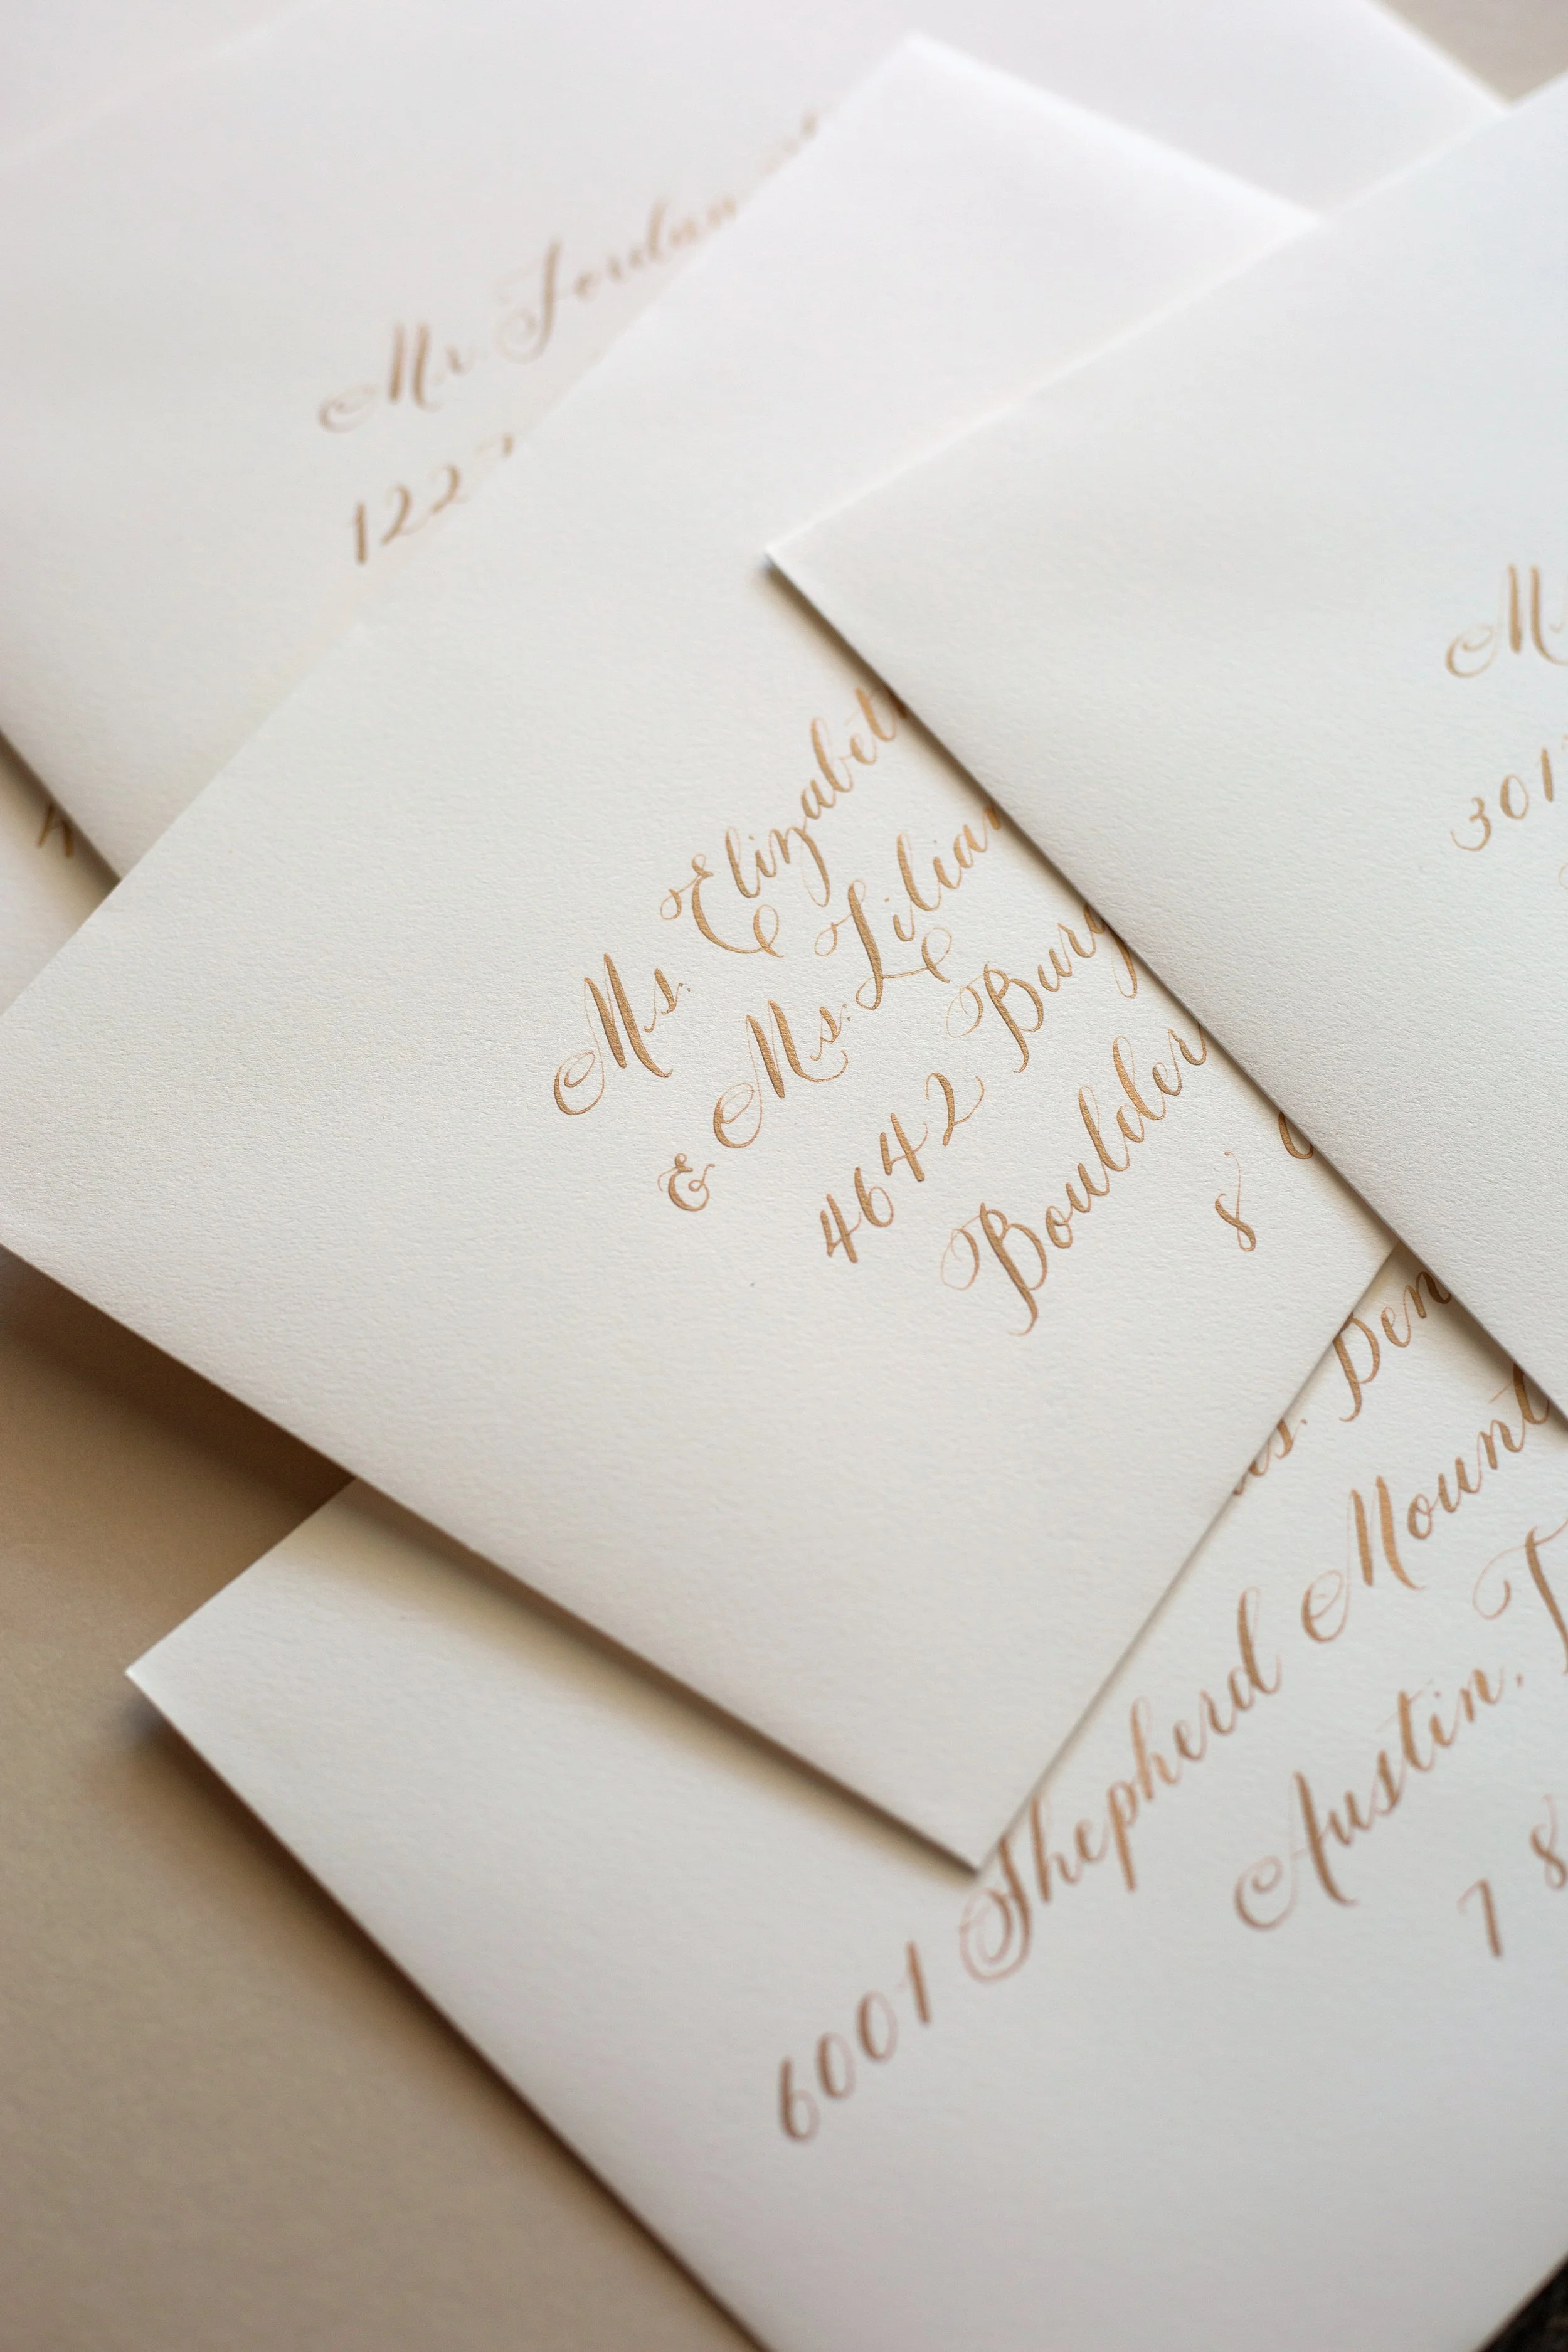 Mr. Jordan
122
Ms. Elizabeth
& Ms. Lilian
4642 Burg
Boulder
8
M
301
Ms. Den
6001 Shepherd Mount
Austin, T
7 8